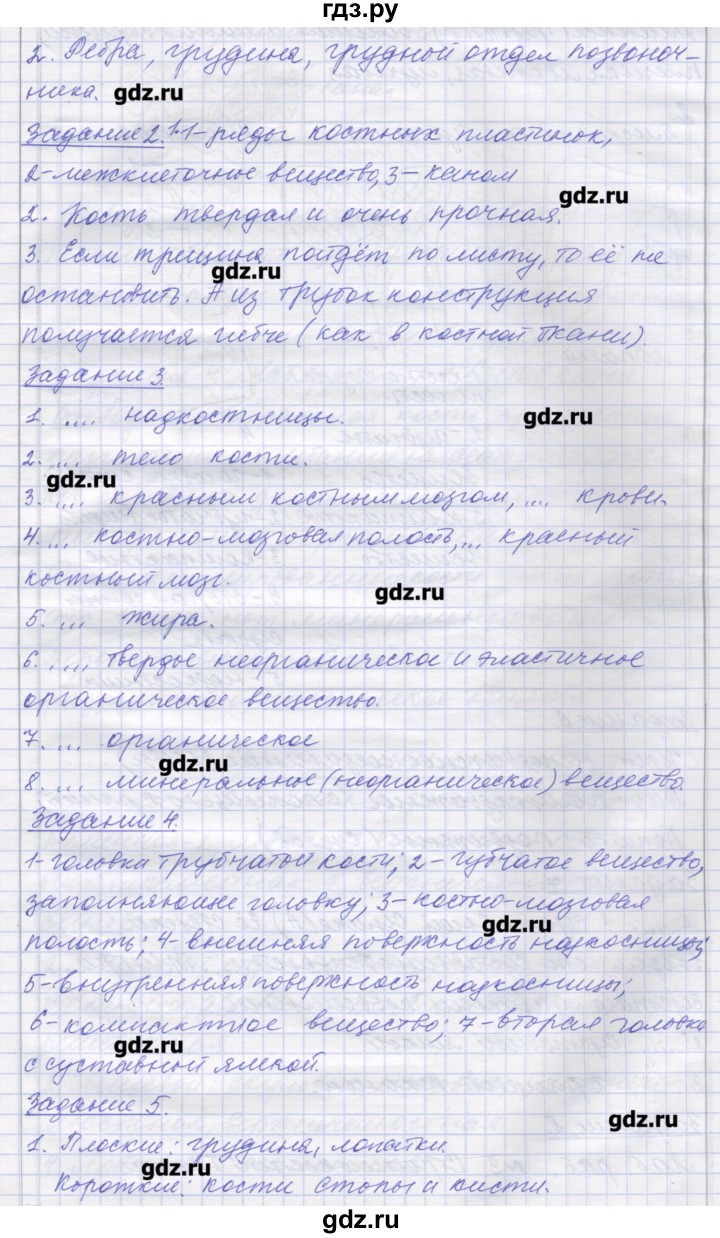 гдз.ру
2. Ребра, грудина, грудной отдел позвоноч-
ника. gdz.ru
Задание 2. 1. 1-ряды костных пластинок,
2-межклеточное вещество, 3-канал
gdz.ru
2. Кость твердая и очень прочная.
3. Если трещина пойдёт по листу, то её не
gdz.ru
остановить. А из трубок конструкция
получается гибче (как в костной ткани).
Задание 3.
1. .... надкостницы. gdz.ru
2. ... тело кости.
gdz.ru
3. .... красным костным мозгом, .... крови.
4. ... костно-мозговая полость, ... красный
костный мозг. gdz.ru
5. ... жира.
6. .... твердое неорганическое и эластичное
органическое вещество.
7. ... органическое
gdz.ru
8. ... минеральное (неорганическое) вещество.
Задание 4.
1-головка трубчатой кости; 2-губчатое вещество,
заполняющее головку; 3-костно-мозговая
gdz.ru
полость; 4-внешняя поверхность надкосницы;
5-внутренняя поверхность надкосницы;
6-компактное вещество; 7-вторая головка
gdz.ru
с суставной ямкой.
Задание 5.
gdz.ru
1. Плоские: грудина, лопатки.
gdz.ru
Короткие: кости стопы и кисти.
gdz.ru